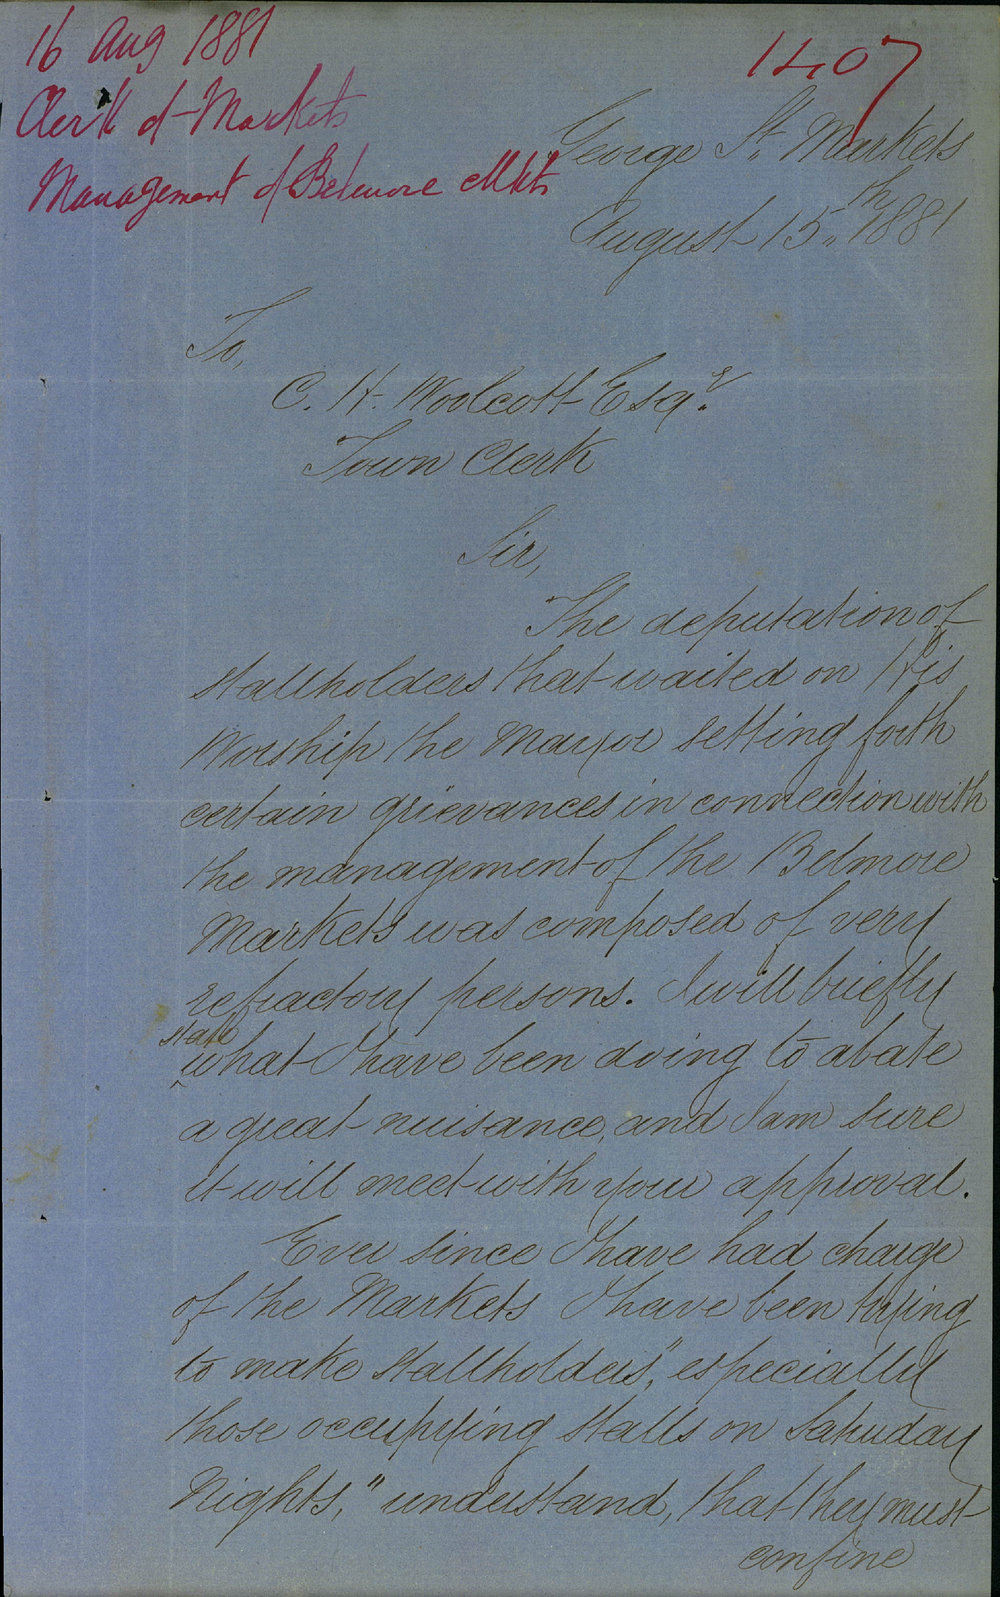 16 Aug 1881
Clerk of Markets
Management of Belmore Mkts
1407
George St. Markets
August 15th 1881
To,
C. H. Woolcott Esqr.
Town Clerk
Sir,
The deputation of
stallholders that waited on His
Worship the Mayor setting forth
certain grievances in connection with
the management of the Belmore
Markets was composed of very
refractory persons. I will briefly
state
what I have been doing to abate
a great nuisance, and I am sure
it will meet with your approval.
Ever since I have had charge
of the Markets I have been trying
to make stallholders, "especially
those occupying stalls on Saturday
Nights," understand, that they must
confine